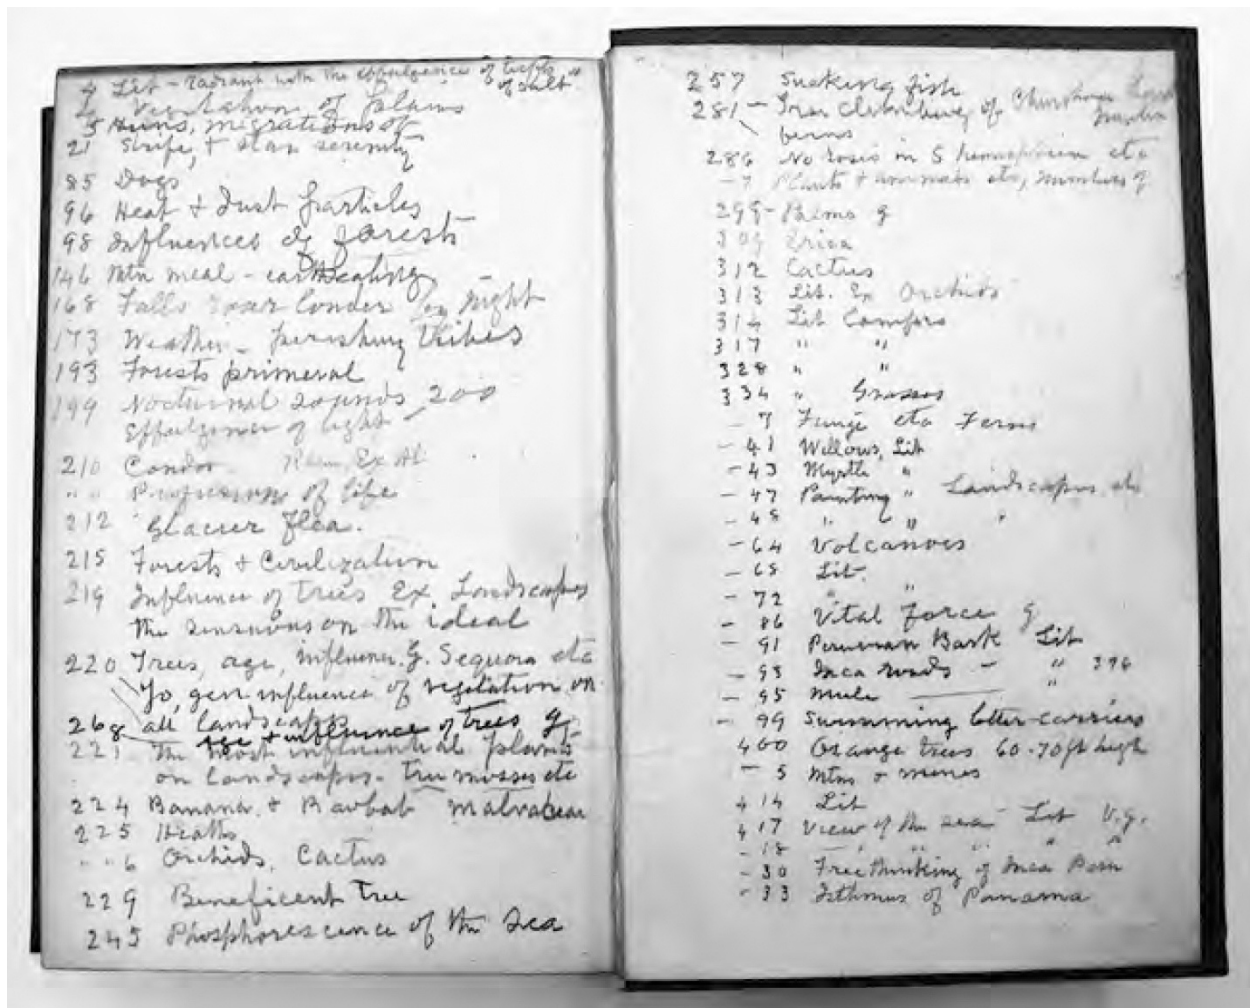 4 Lit - radiant with the effulgence of tufts of salt"
4 Vegetation of plains
5 Huns, migrations of
21 Strife, + stars serenity
85 Dogs
96 Heat + dust particles
98 Influences of forests
146 Mtn meal - earth eating
168 Falls roar louder by night
173 Weather - perishing tribes
193 Forests primeval
199 Nocturnal sounds, 200
Effulgence of light
210 Condor Ex Al
" " Profusion of life
212 Glacier flea.
215 Forests + Civilization
219 Influence of trees Ex Landscapes
the sensuous on the ideal
220 Trees, age, influence. G. Sequoia etc
Yo, gen influence of vegetation on
all landscapes
268 age + influence of trees g
221 The most influential plants
on landscapes. tree mosses etc
224 Banana + Baobab malvaceae
225 Heaths
" " 6 Orchids, Cactus
229 Beneficent tree
245 Phosphorescence of the Sea
257 Sucking fish
281 - Tree Climbing of
ferns
286 No roses in S hemisphere etc
- 7 Plants + animals etc, numbers of
299 - Palms g
309 Erica
312 Cactus
313 Lit. Ex Orchids
314 Lit Compos
317 " "
328 " "
334 " Grasses
- 7 Fungi etc Ferns
- 41 Willows, Lit
- 43 Myrtle "
- 47 Painting " Landscapes, etc
- 48 " " "
- 64 Volcanoes
- 68 Lit.
- 72 " "
- 86 Vital force g
- 91 Peruvian Bark Lit
- 93 Inca roads - " 396
- 95 Mule "
- 99 Swimming letter-carriers
400 Orange trees 60-70 ft high
- 5 Mtns + mines
414 Lit
417 View of the sea Lit V.g.
- 18 " " " " "
- 30 Freethinking of Inca Peru
- 33 Isthmus of Panama